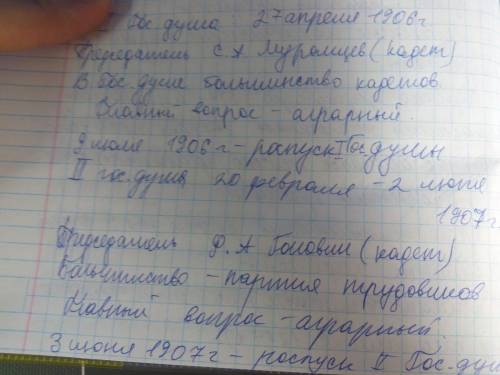 Гос. дума 27 апреля 1906г
Председатель С А Муромцев (кадет)
В Гос. думе большинство кадетов
Главный вопрос - аграрный.
9 июля 1906г - роспуск I Гос думы
II гос. дума 20 февраля - 2 июня
1907г
Председатель Ф. А Головин (кадет)
Большинство - партия трудовиков
Главный вопрос - аграрный
3 июня 1907г - роспуск II Гос. ду